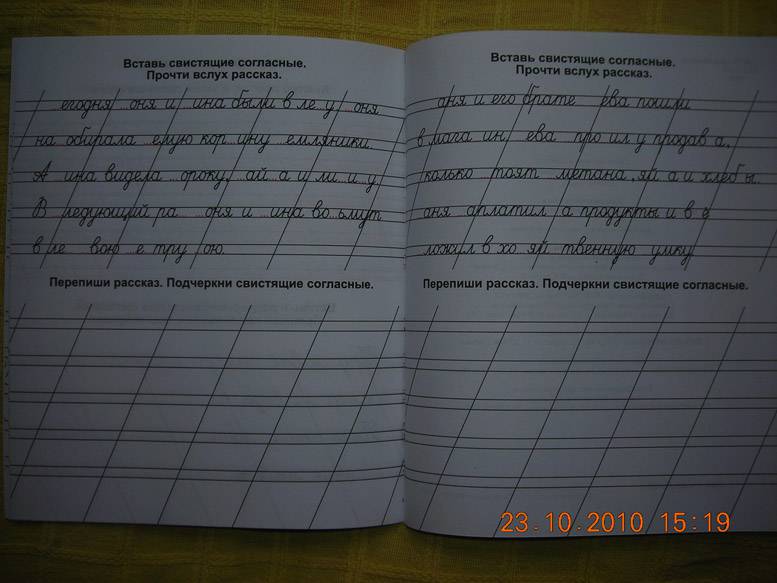 Вставь свистящие согласные.
Прочти вслух рассказ.
егодня оня и ина были в ле у оня
на обирала елую кор ину емляники.
А ина видела ороку, ай а и ли и у
В ледующий ра оня и ина во ьмут
в ле вою е тру ою.
Перепиши рассказ. Подчеркни свистящие согласные.
Вставь свистящие согласные.
Прочти вслух рассказ.
аня и его брате ева пошли
в мага ин. ева про ил у продав а,
колько тоят метана, яй а и хлебы.
аня аплатил а продукты и в ё
ложил в хо яй твенную умку.
Перепиши рассказ. Подчеркни свистящие согласные.
23.10.2010 15:19